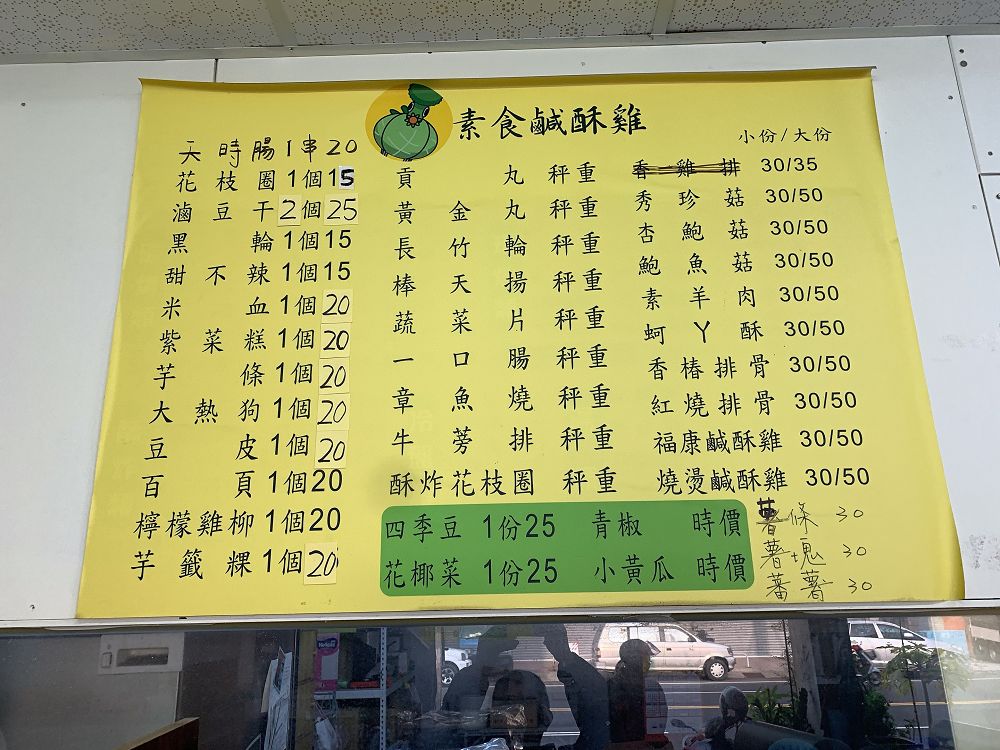 素食鹹酥雞
小份/大份
天時腸1串20
花枝圈1個15
滷豆干2個25
黑輪1個15
甜不辣1個15
米血1個20
紫菜糕1個20
芋條1個20
大熱狗1個20
豆皮1個20
百頁1個20
檸檬雞柳1個20
芋籤粿1個20
貢丸 秤重
黃金丸 秤重
長竹輪 秤重
棒天揚 秤重
蔬菜片 秤重
一口腸 秤重
章魚燒 秤重
牛蒡排 秤重
酥炸花枝圈 秤重
香雞排 30/35
秀珍菇 30/50
杏鮑菇 30/50
鮑魚菇 30/50
素羊肉 30/50
蚵丫酥 30/50
香椿排骨 30/50
紅燒排骨 30/50
福康鹹酥雞 30/50
燒燙鹹酥雞 30/50
四季豆 1份25 青椒 時價
花椰菜 1份25 小黃瓜 時價
薯條 30
薯塊 30
蕃薯 30